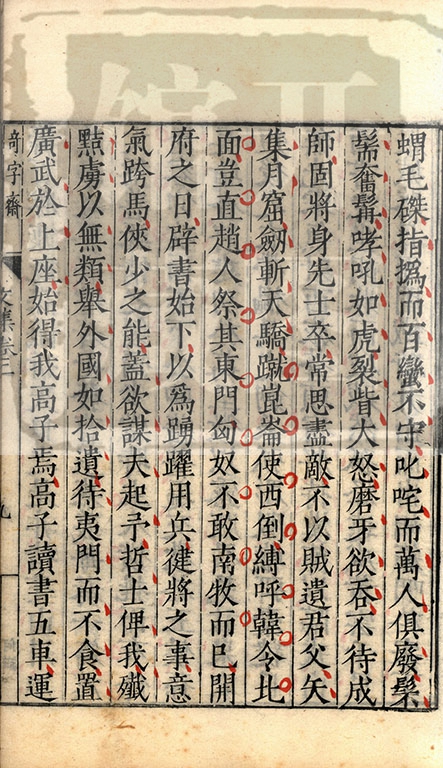 蝟毛磔指撝而百蠻不守叱咤而萬人俱廢髤
髵奮髯哮吼如虎裂眥大怒磨牙欲吞不待成
師固將身先士卒常思盡敵不以賊遺君父矢
集月窟劒斬天驕蹴崑崙使西倒縛呼韓令北
面豈直趙人祭其東門匈奴不敢南牧而已開
府之日辟書始下以爲踴躍用兵健將之事意
氣跨馬俠少之能蓋欲謀夫起予哲士俾我殲
黠虜以無類舉外國如拾遺待夷門而不食置
廣武於上座始得我高子焉高子讀書五車運
奇字齋
文集卷二
九